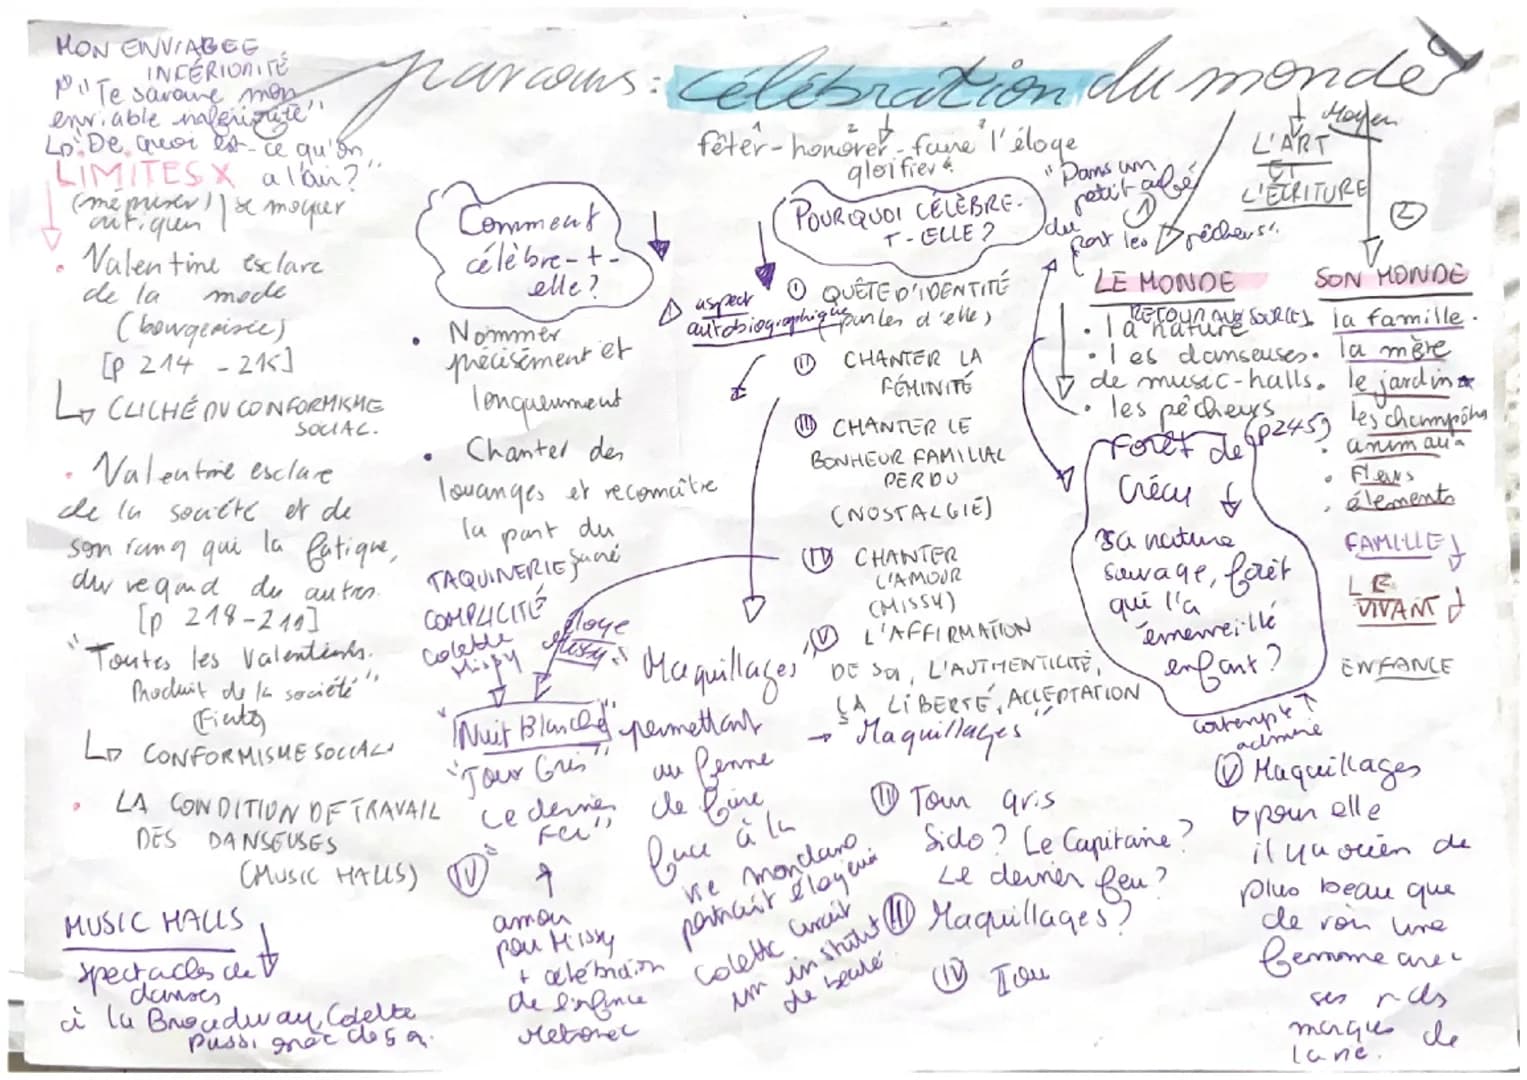 parcours : célébration du monde
fêter - honorer - faire l'éloge
glorifier
MON ENVIABLE
INFÉRIORITÉ
"Te savoure mon
enviable infériorité"
"De quoi est-ce qu'on
a l'air ?"
LIMITES X
(mépriser) | se moquer
critiquer
• Valentine esclave
de la mode
(bourgeoisie)
[p 214 - 215]
CLICHÉ DU CONFORMISME
SOCIAL.
• Valentine esclave
de la société et de
son rang qui la fatigue,
du regard des autres.
[p 218-219]
"Toutes les Valentines.
Produit de la société"
CONFORMISME SOCIAL
• LA CONDITION DE TRAVAIL
DES DANSEUSES
(MUSIC HALLS)
MUSIC HALLS
spectacles de
danses
à la Broadway, Colette
Comment
célèbre-t-
elle ?
• Nommer
précisément et
longuement
• Chanter des
louanges et reconnaître
la part du
sacré
TAQUINERIE
COMPLICITÉ
Colette
Missy
éloge
Missy
"Nuit Blanche"
"Jour Gris"
"Le dernier
feu"
IV
amour
pour Missy
+ célébration
de l'enfance
"Maquillages"
permettant
au femme
de faire
face à la
vie mondaine
portrait élogieux
Colette avait
un institut
de beauté
POURQUOI CÉLÈBRE-
T-ELLE ?
aspect
autobiographique
I QUÊTE D'IDENTITÉ
(parler d'elle)
II CHANTER LA
FÉMINITÉ
III CHANTER LE
BONHEUR FAMILIAL
PERDU
(NOSTALGIE)
IV CHANTER
L'AMOUR
(MISSY)
V L'AFFIRMATION
DE SOI, L'AUTHENTICITÉ,
LA LIBERTÉ, ACCEPTATION
→ "Maquillages"
II Jour gris
Sido ? Le Capitaine ?
Le dernier feu ?
III Maquillages ?
IV Jour
"Dans un
petit café
du
port les pêcheurs".
1
LE MONDE
RETOUR AUX SOURCES
• la nature
• les danseuses
de music-halls.
• les pêcheurs
(p245)
Forêt de
Crécy
sa nature
sauvage, forêt
qui l'a
émerveillé
enfant ?
contemple
admire
L'ART
ET
L'ÉCRITURE
Moyen
2
SON MONDE
la famille.
la mère
le jardin
les champs
animaux
• fleurs
• élements
FAMILLE
LE
VIVANT
ENFANCE
V Maquillages
pour elle
il y a rien de
plus beau que
de voir une
femme avec
ses rides
marques de
la vie.